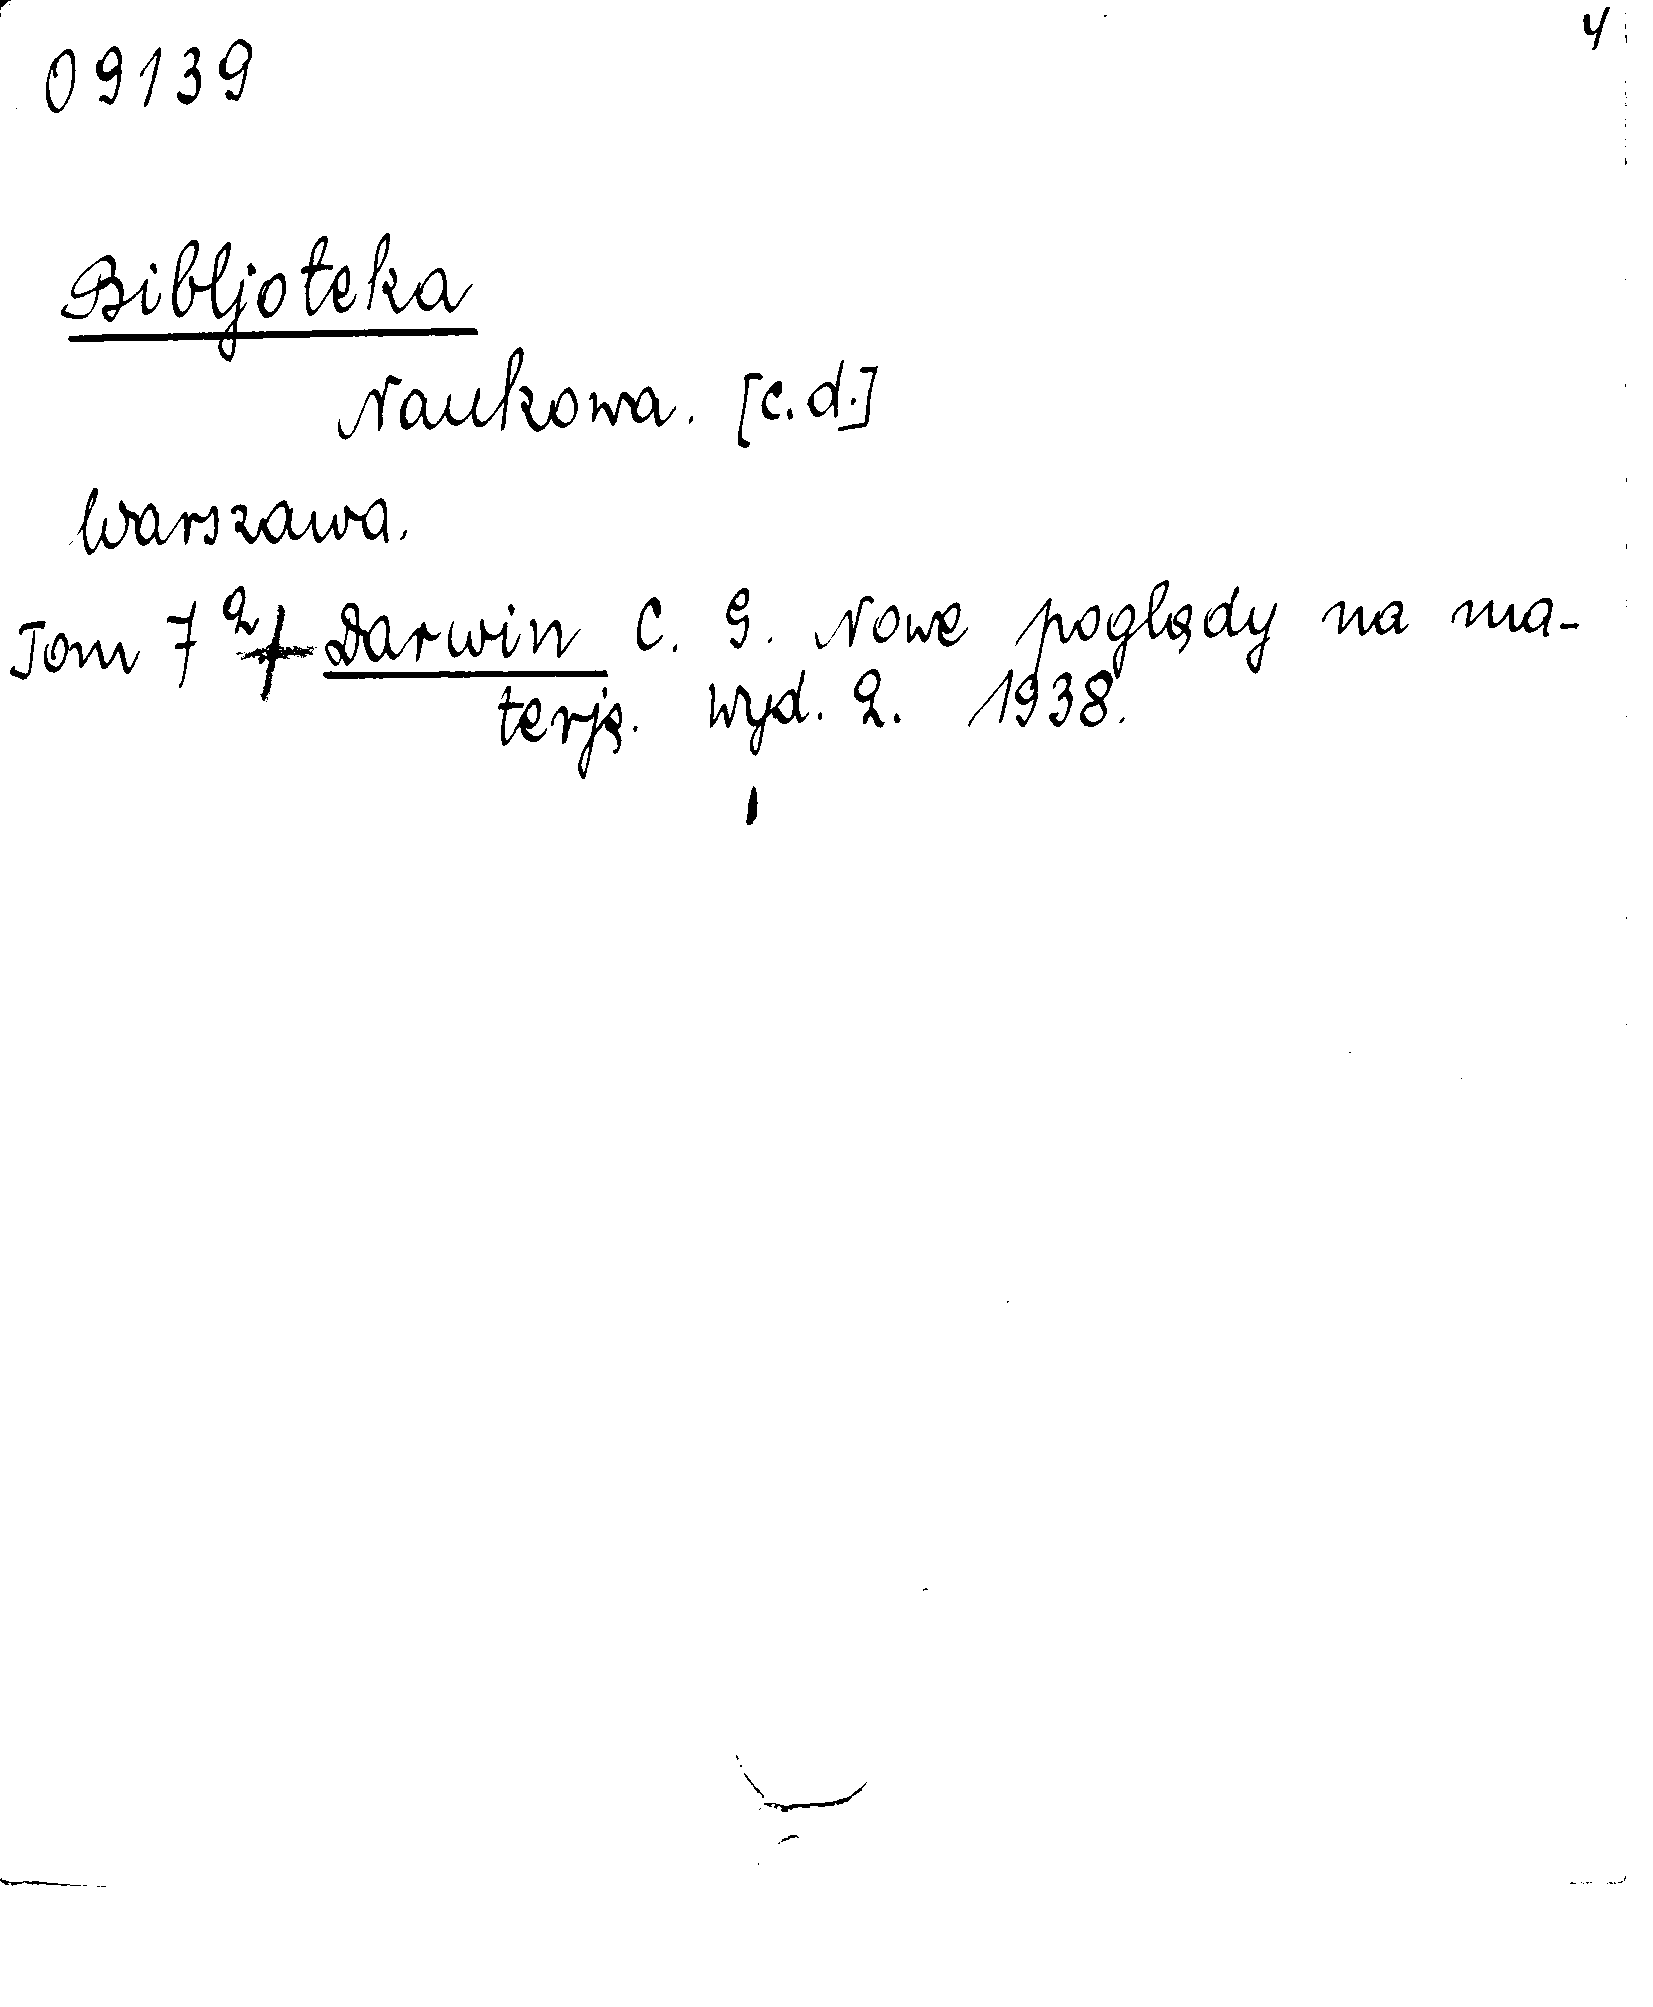 4
09139
Bibljoteka
Naukowa. [c.d.]
Warszawa.
Tom 7 2/ Darwin C. G. Nowe poglądy na ma-
terję. wyd. 2. 1938.